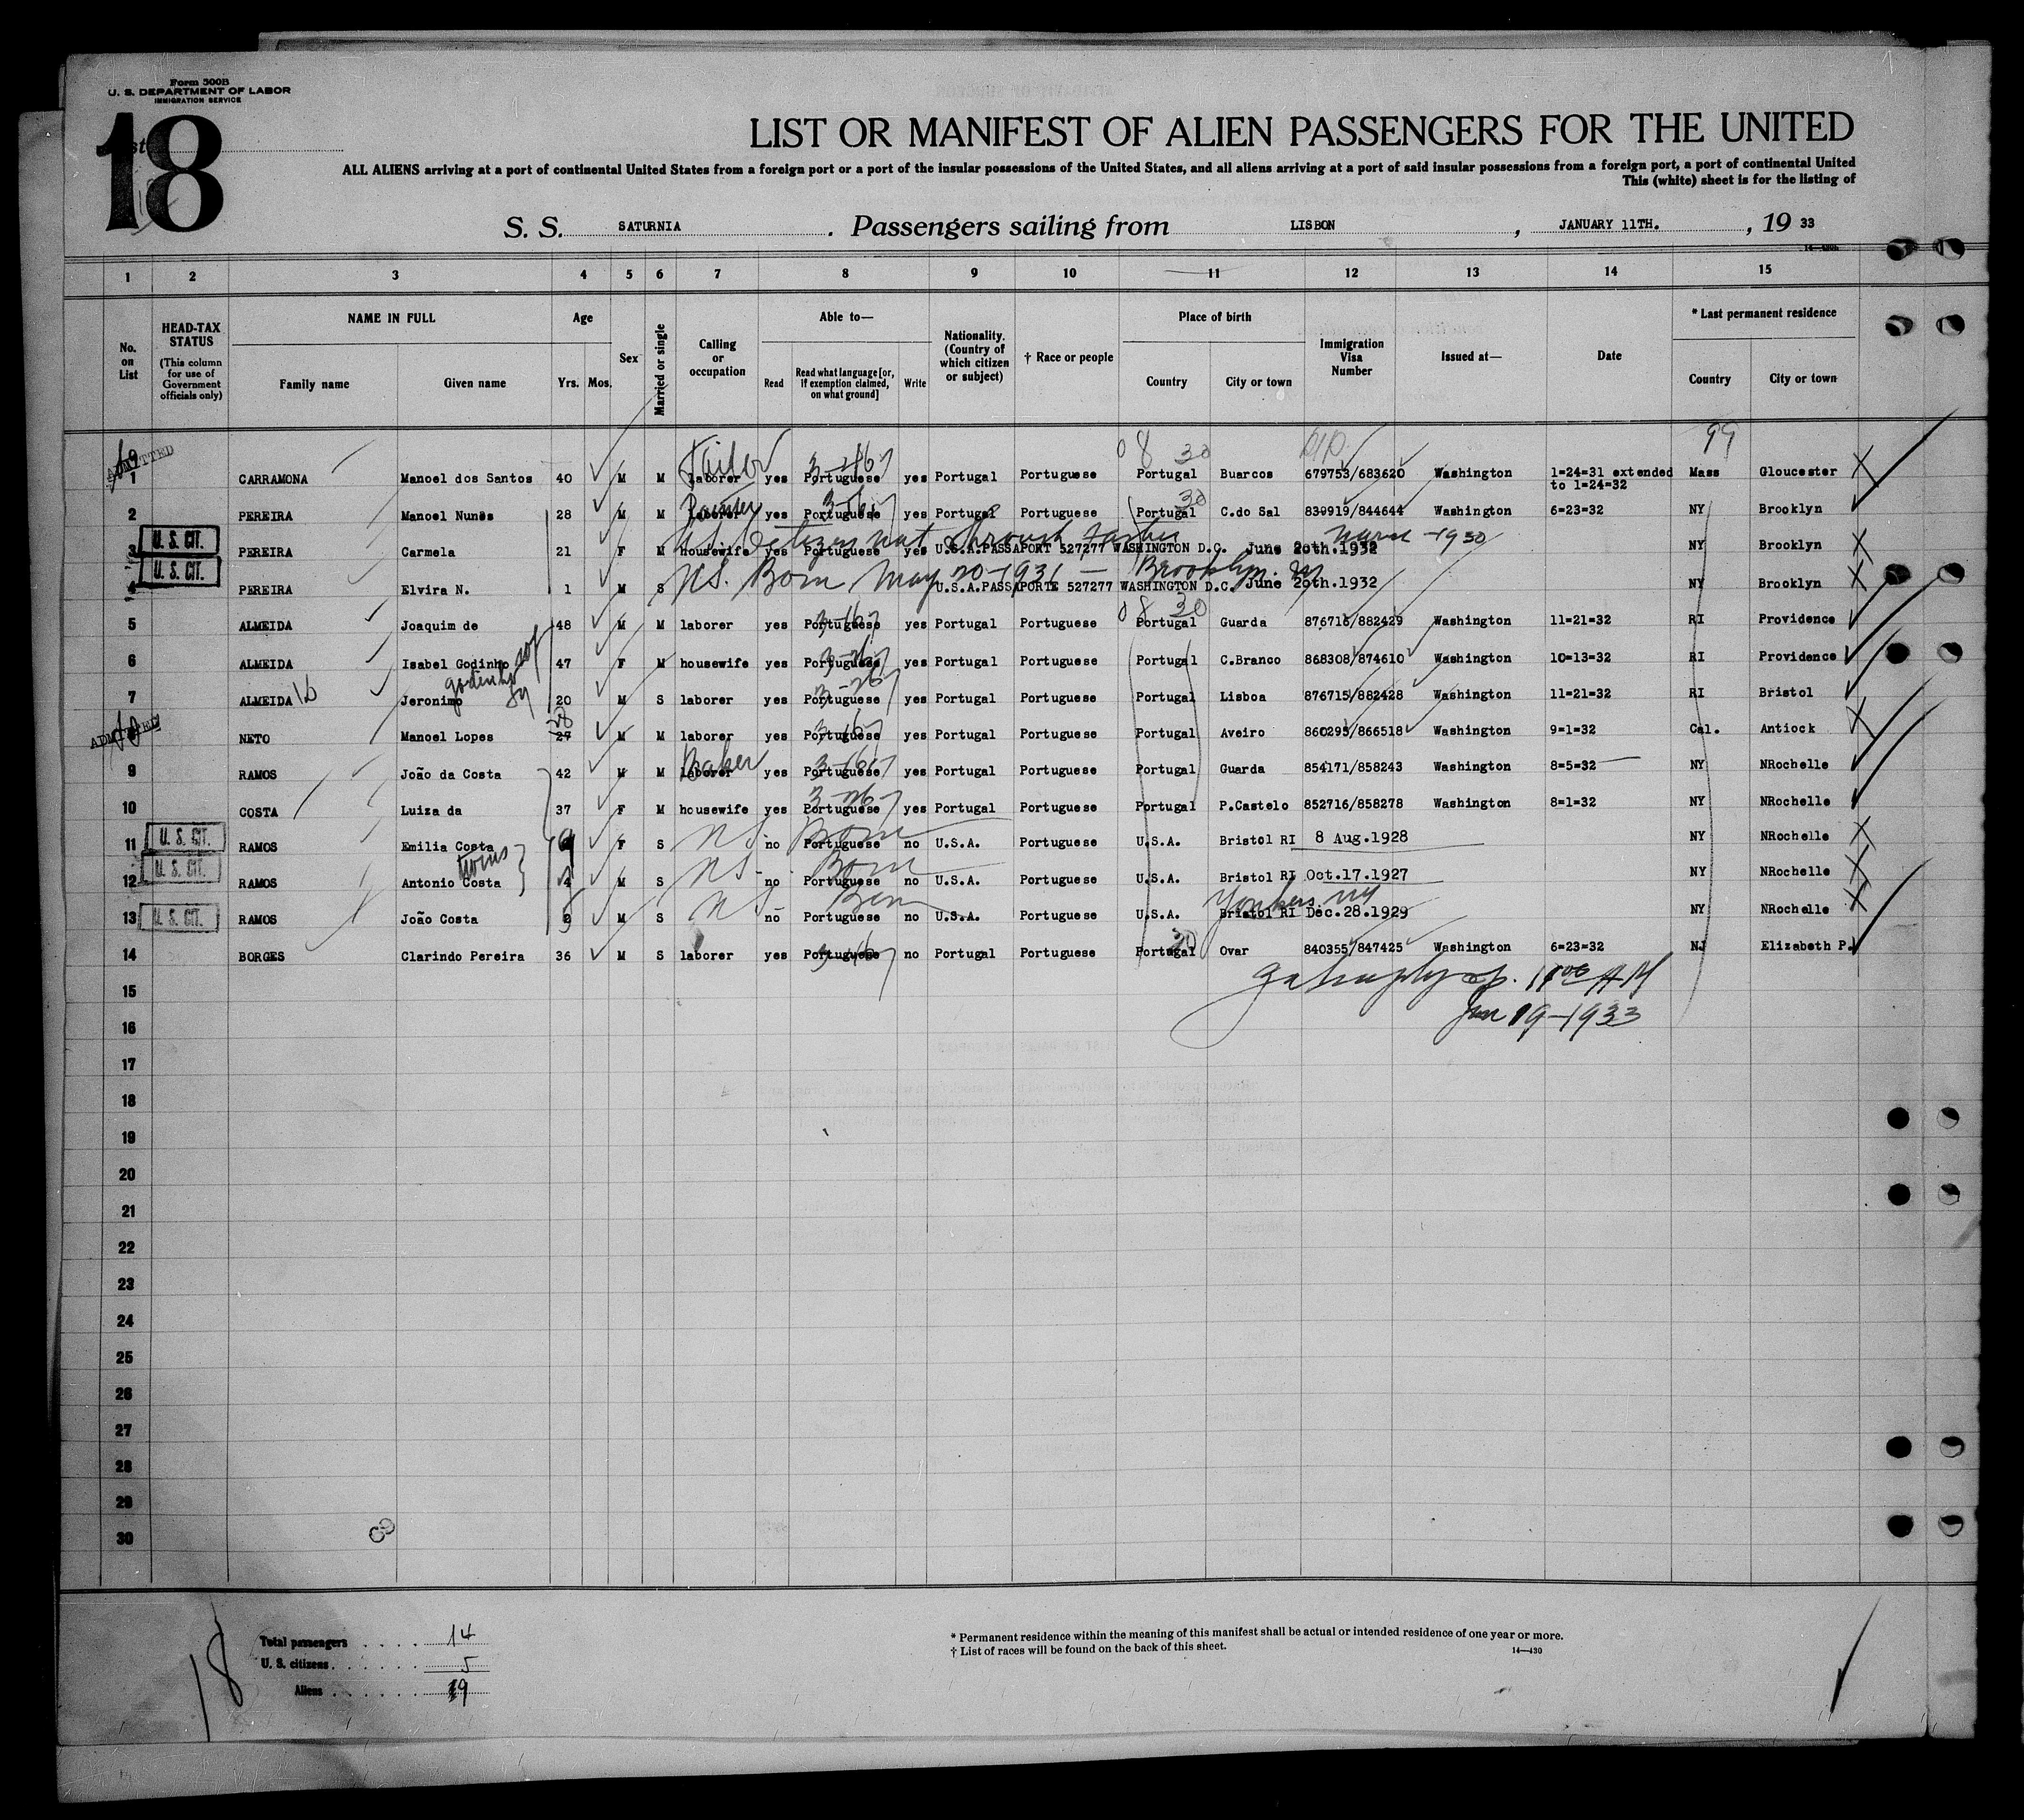 Form 500B
U. S. DEPARTMENT OF LABOR
IMMIGRATION SERVICE
18
LIST OR MANIFEST OF ALIEN PASSENGERS FOR THE UNITED
ALL ALIENS arriving at a port of continental United States from a foreign port or a port of the insular possessions of the United States, and all aliens arriving at a port of said insular possessions from a foreign port, a port of continental United
This (white) sheet is for the listing of
S. S. SATURNIA . Passengers sailing from LISBON , JANUARY 11TH. , 19 33
1 2 3 4 5 6 7 8 9 10 11 12 13 14 15
No. on List
HEAD-TAX STATUS (This column for use of Government officials only)
NAME IN FULL
Family name Given name
Age
Yrs. Mos.
Sex
Married or single
Calling or occupation
Able to—
Read Read what language [or, if exemption claimed, on what ground] Write
Nationality. (Country of which citizen or subject)
† Race or people
Place of birth
Country City or town
Immigration Visa Number
Issued at—
Date
* Last permanent residence
Country City or town
ADMITTED
08 30 99
Tailor
1 CARRAMONA Manoel dos Santos 40 M M laborer yes Portuguese yes Portugal Portuguese Portugal Buarcos 679753/683620 Washington 1-24-31 extended to 1-24-32 Mass Gloucester
30
2 PEREIRA Manoel Nunes 28 M M laborer yes Portuguese yes Portugal Portuguese Portugal C.do Sal 839919/844644 Washington 6-23-32 NY Brooklyn
U. S. CIT.
U.S. Citizen nat through Father 1930
3 PEREIRA Carmela 21 F M housewife yes Portuguese yes U.S.A.PASSAPORT 527277 WASHINGTON D.C. June 20th.1932 NY Brooklyn
U. S. CIT.
U.S. Born May 20-1931 — Brooklyn. NY
4 PEREIRA Elvira N. 1 M S U.S.A.PASSAPORTE 527277 WASHINGTON D.C. June 20th.1932 NY Brooklyn
08 30
5 ALMEIDA Joaquim de 48 M M laborer yes Portuguese yes Portugal Portuguese Portugal Guarda 876716/882429 Washington 11-21-32 RI Providence
6 ALMEIDA Isabel Godinho 47 F M housewife yes Portuguese yes Portugal Portuguese Portugal C.Branco 868308/874610 Washington 10-13-32 RI Providence
godinho
7 ALMEIDA Jeronimo 20 M S laborer yes Portuguese yes Portugal Portuguese Portugal Lisboa 876715/882428 Washington 11-21-32 RI Bristol
ADMITTED
28
8 NETO Manoel Lopes 27 M M laborer yes Portuguese yes Portugal Portuguese Portugal Aveiro 860295/866518 Washington 9-1-32 Cal. Antiock
Baker
9 RAMOS João da Costa 42 M M laborer yes Portuguese yes Portugal Portuguese Portugal Guarda 854171/858243 Washington 8-5-32 NY NRochelle
10 COSTA Luiza da 37 F M housewife yes Portuguese yes Portugal Portuguese Portugal P.Castelo 852716/858278 Washington 8-1-32 NY NRochelle
U. S. CIT.
US Born
11 RAMOS Emilia Costa F S no Portuguese no U.S.A. Portuguese U.S.A. Bristol RI 8 Aug.1928 NY NRochelle
twins
U. S. CIT.
US. Born
12 RAMOS Antonio Costa 4 M S no Portuguese no U.S.A. Portuguese U.S.A. Bristol RI Oct.17.1927 NY NRochelle
U. S. CIT.
US Born Yonkers NY
13 RAMOS João Costa M S no Portuguese no U.S.A. Portuguese U.S.A. Bristol RI Dec.28.1929 NY NRochelle
30
14 BORGES Clarindo Pereira 36 M S laborer yes Portuguese no Portugal Portuguese Portugal Ovar 840355/847425 Washington 6-23-32 NJ Elizabeth P.
15
Jan 19-1933
16
17
18
19
20
21
22
23
24
25
26
27
28
29
30
Total passengers . . . . 14
U. S. citizens . . . . . . 5
Aliens . . . . . . 9
18
* Permanent residence within the meaning of this manifest shall be actual or intended residence of one year or more.
† List of races will be found on the back of this sheet.
14—430